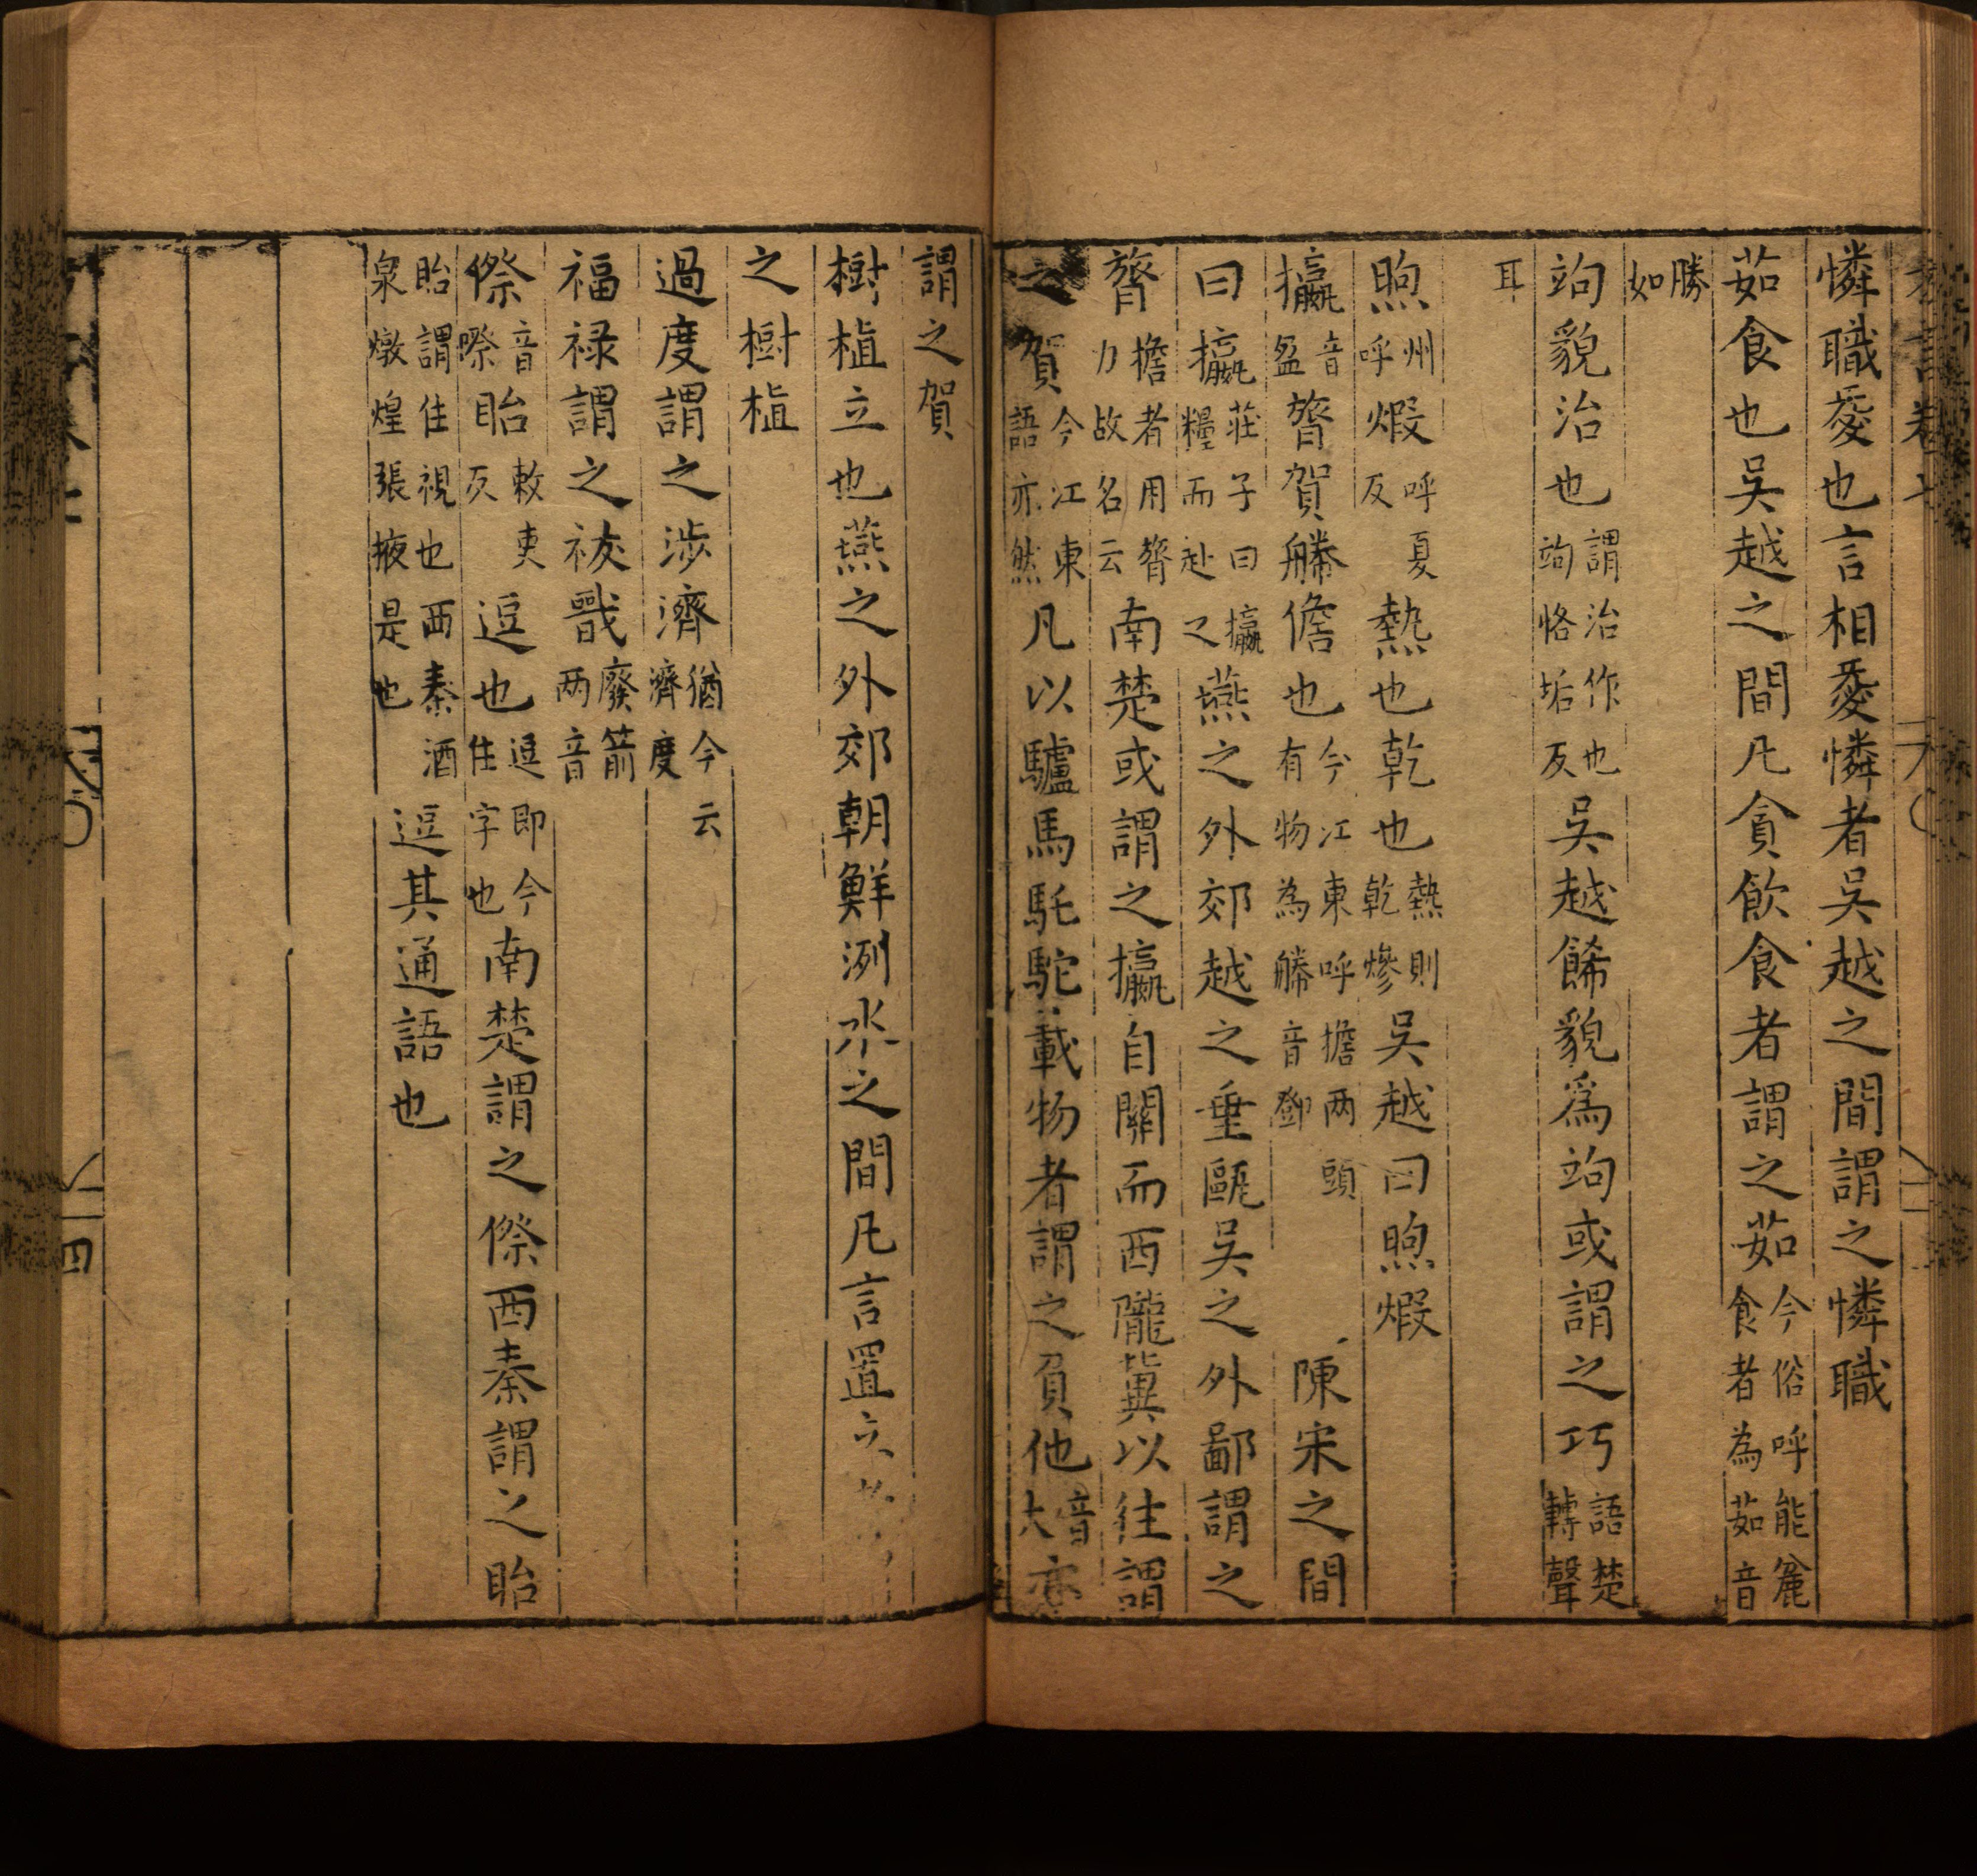 憐職愛也言相愛憐者吳越之間謂之憐職
茹食也吳越之間凡貪飲食者謂之茹今俗呼能麄食者為茹音
勝如
竘貌治也謂治作也竘恪垢反吳越飾貌爲竘或謂之巧語楚轉聲
耳
煦州呼煆呼夏反熱也乾也熱則乾㷶吳越曰煦煆
攍音盈膂賀幐儋也今江東呼擔两頭有物為幐音鄧陳宋之間
曰攍莊子曰攍糧而赴之燕之外郊越之垂甌吳之外鄙謂之
膂擔者用膂力故名云南楚或謂之攍自關而西隴冀以往謂
之賀今江東語亦然凡以驢馬馲駝載物者謂之負他音大亦
謂之賀
樹植立也燕之外郊朝鮮洌水之間凡言置立者
之樹植
過度謂之涉濟猶今云濟度
福禄謂之祓戬廢箭两音
傺音際眙敕吏反逗也逗即今住字也南楚謂之傺西秦謂之眙
眙謂住視也西秦酒泉燉煌張掖是也逗其通語也
四